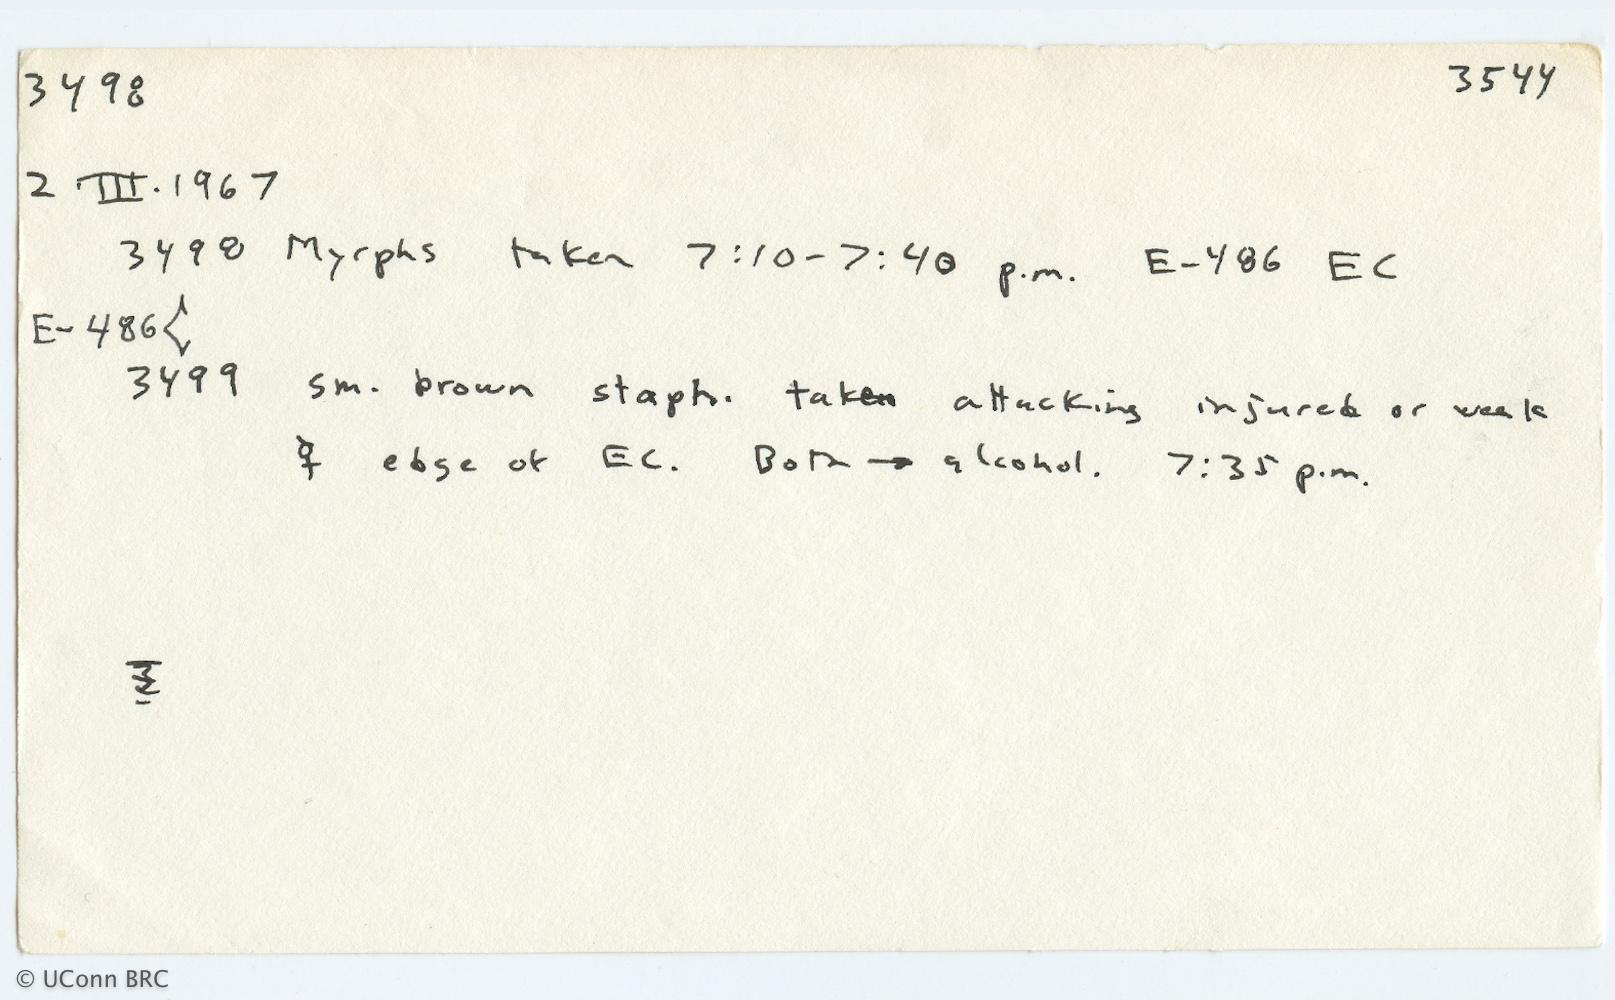 3498 3544
2 III.1967
3498 Myrphs taken 7:10-7:40 p.m. E-486 EC
E-486
3499 sm. brown staph. taken attacking injured or weak
☿ edge of EC. Both → alcohol. 7:35 p.m.
© UConn BRC